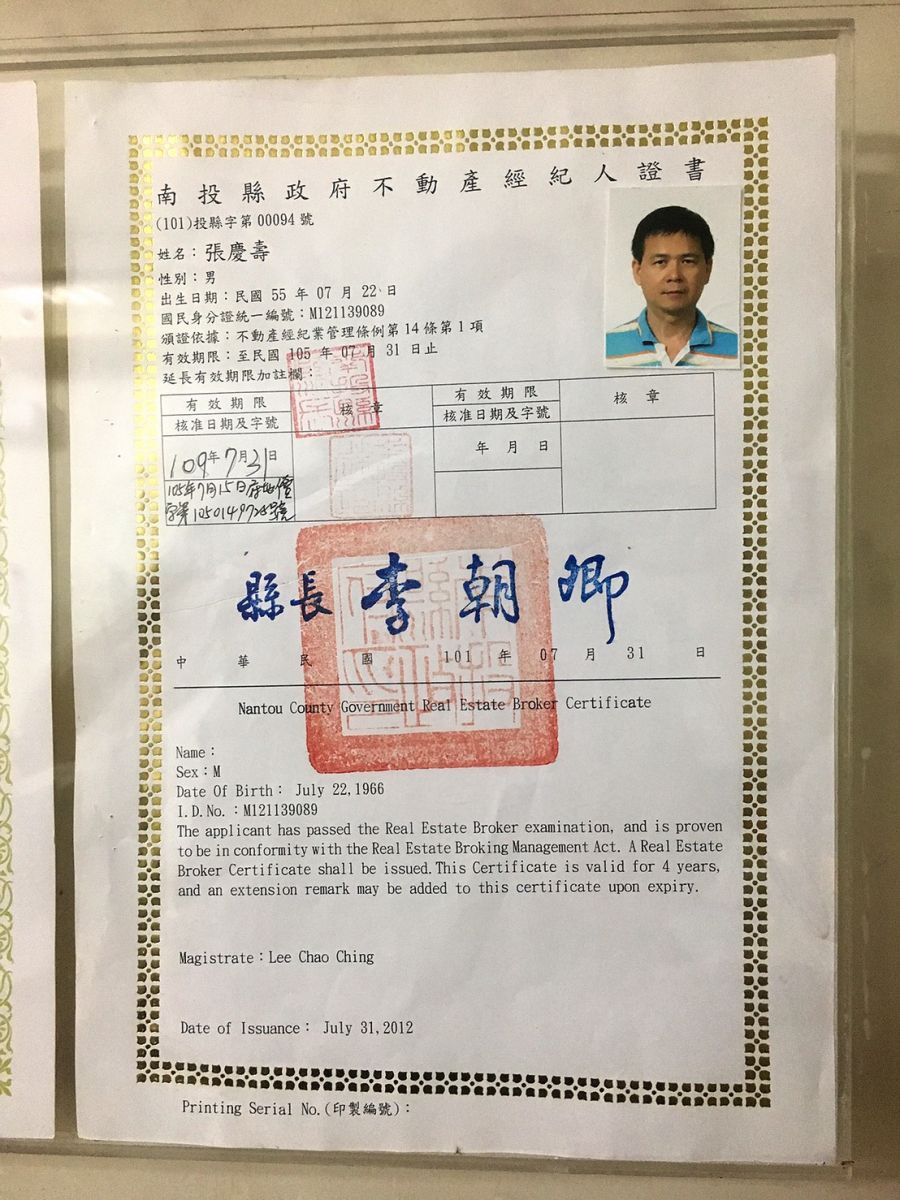 南投縣政府不動產經紀人證書
(101)投縣字第00094號
姓名：張慶壽
性別：男
出生日期：民國 55 年 07 月 22 日
國民身分證統一編號：M121139089
頒證依據：不動產經紀業管理條例第14條第1項
有效期限：至民國 105 年 07 月 31 日止
延長有效期限加註欄：
有效期限 核章 有效期限 核章
核准日期及字號 核准日期及字號
109年7月31日 年 月 日
105年7月15日府地價
字第1050149728號
縣長 李朝卿
中華民國 101 年 07 月 31 日
Nantou County Government Real Estate Broker Certificate
Name：
Sex：M
Date Of Birth： July 22,1966
I.D.No.：M121139089
The applicant has passed the Real Estate Broker examination, and is proven
to be in conformity with the Real Estate Broking Management Act. A Real Estate
Broker Certificate shall be issued.This Certificate is valid for 4 years,
and an extension remark may be added to this certificate upon expiry.
Magistrate：Lee Chao Ching
Date of Issuance： July 31,2012
Printing Serial No.(印製編號)：